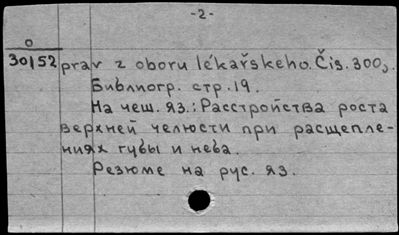 -2-
0
30152 prav z oboru lékařskeho. Čis. 300,.
Библиогр. стр. 19.
На чеш. яз.: Расстройства роста
верхней челюсти при расщепле-
ниях губы и неба.
Резюме на рус. яз.